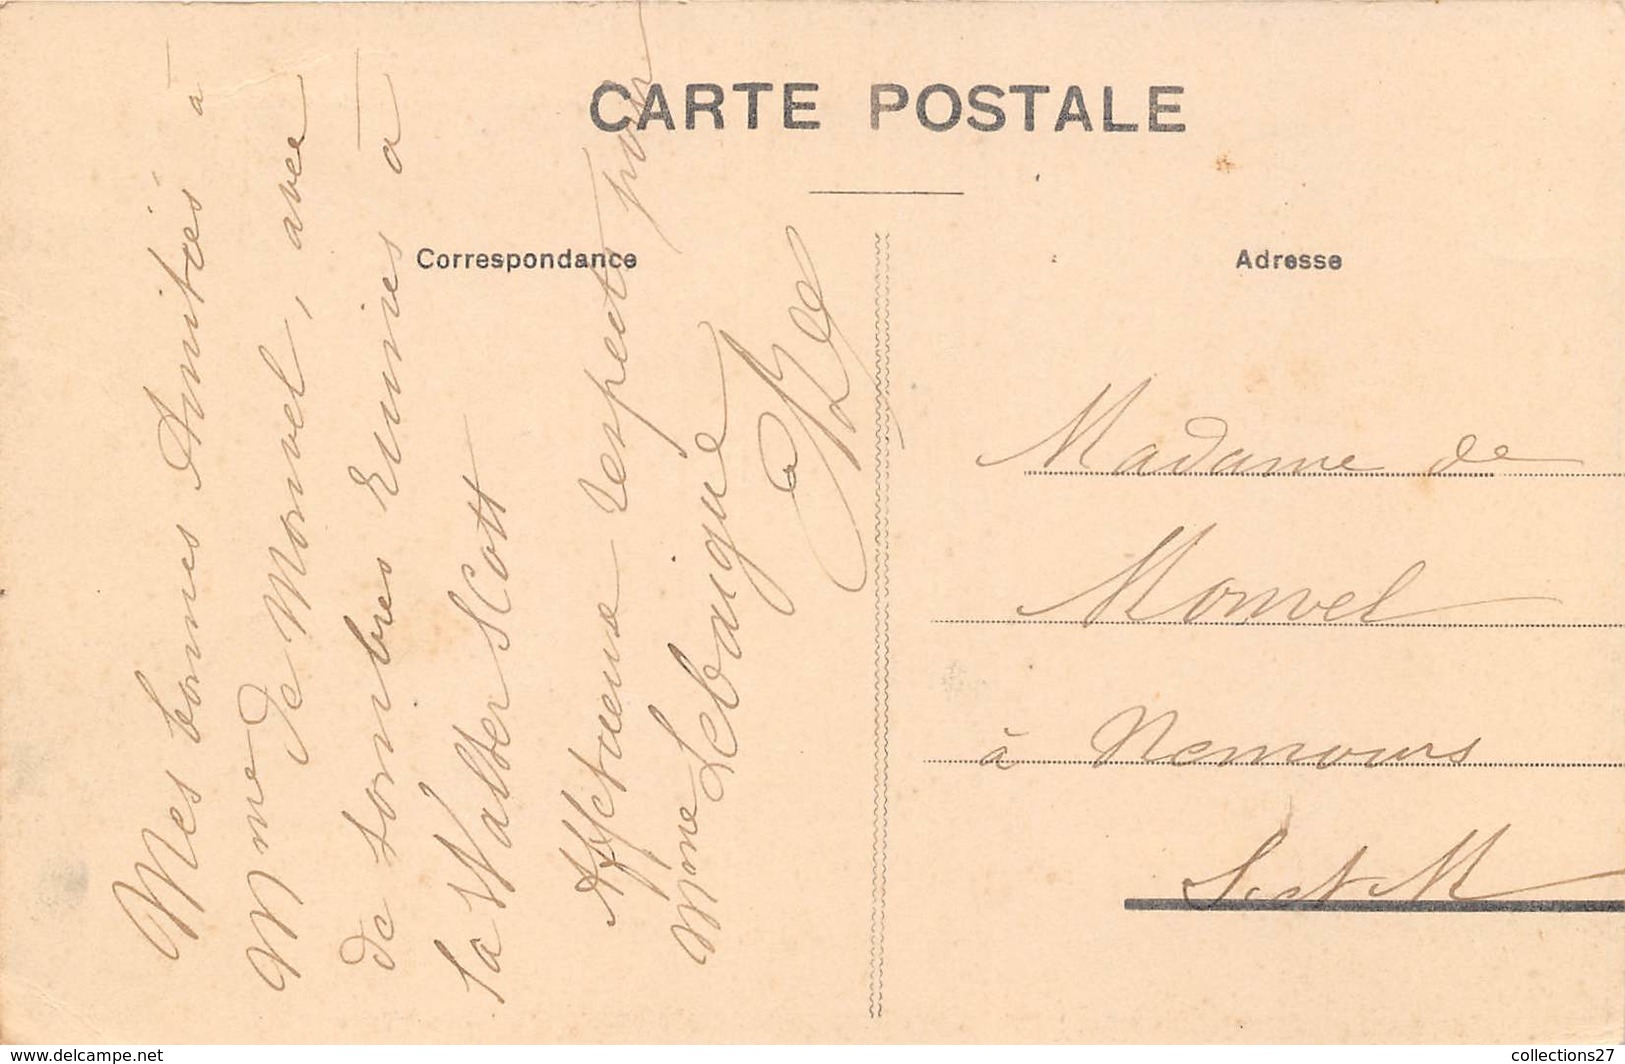 CARTE POSTALE
Correspondance
Adresse
Mes bonnes Amitiés à
Mme de Monvel, avec
de sombres Ruines à
la Walter Scott
Affectueux respects pour
Mme Lebaigue
Madame de
Monvel
à Nemours
S. et M
www.delcampe.net
collections27